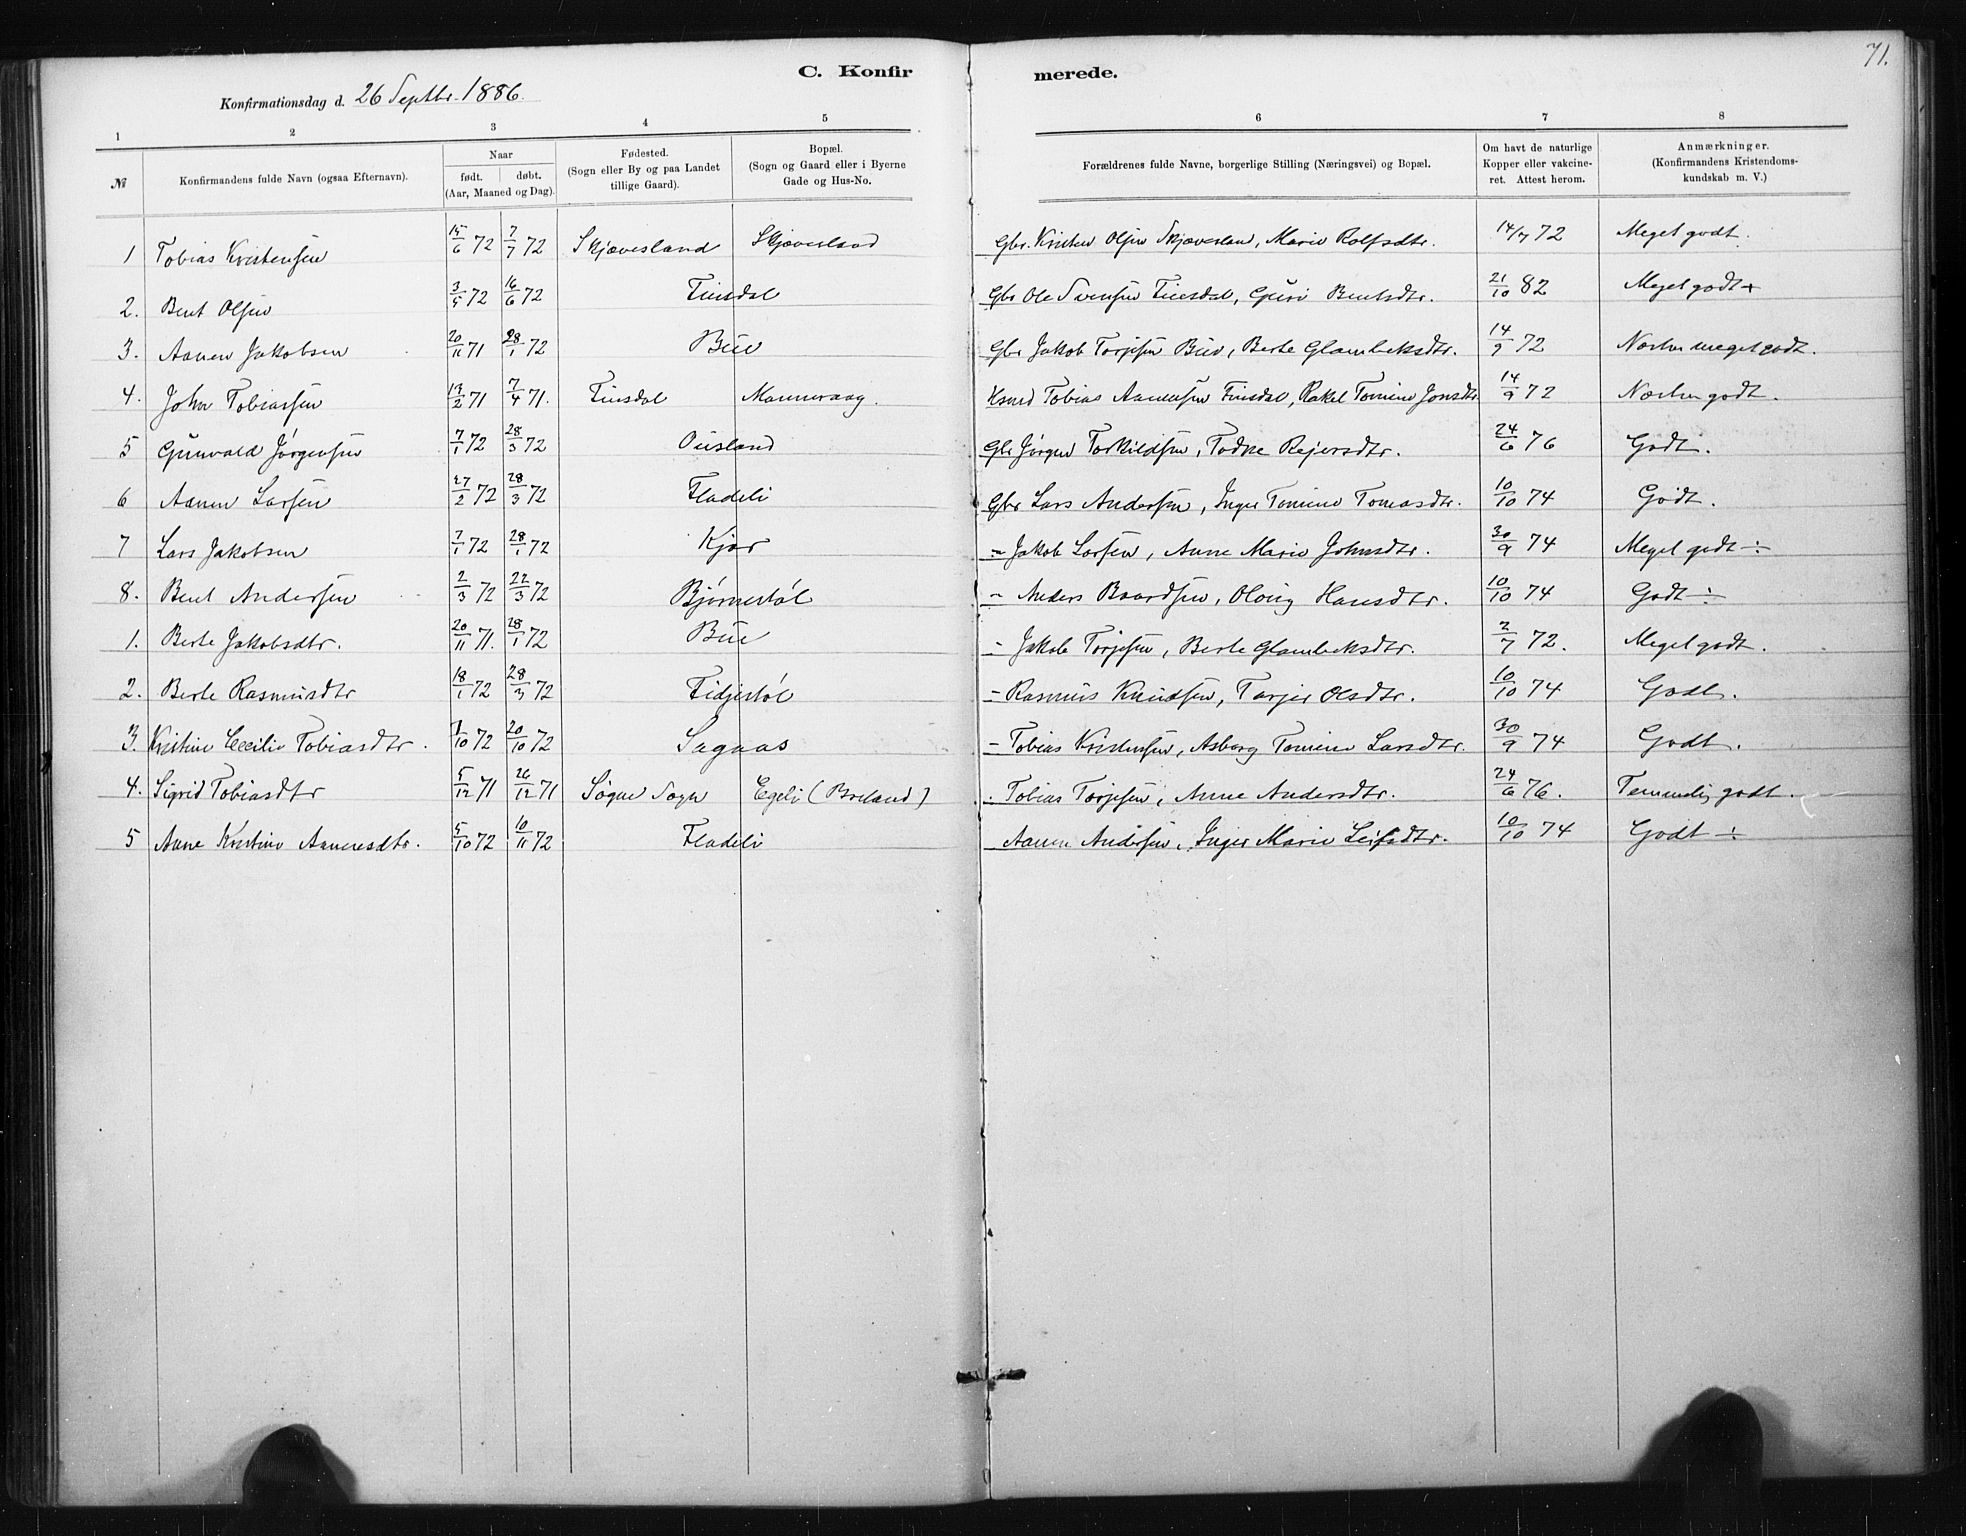 71.
C. Konfirmerede.
Konfirmationsdag d. 26 Septbr. 1886.
1 2 3 4 5 6 7 8
№ | Konfirmandens fulde Navn (ogsaa Efternavn). | Naar født. døbt. (Aar, Maaned og Dag). | Fødested. (Sogn eller By og paa Landet tillige Gaard). | Bopæl. (Sogn og Gaard eller i Byerne Gade og Hus-No. | Forældrenes fulde Navne, borgerlige Stilling (Næringsvei) og Bopæl. | Om havt de naturlige Kopper eller vakcineret. Attest herom. | Anmærkninger. (Konfirmandens Kristendomskundskab m. V.)
1 Tobias Kristensen 15/6 72 7/7 72 Skjævesland Skjævesland Gbr. Kristen Olsen Skjævesland, Marie Rolfsdtr. 14/7 72 Meget godt.
2. Bent Olsen 3/5 72 16/6 72 Finsdal Gbr Ole Svensen Finsdal, Guri Bentsdtr. 21/10 82 Meget godt +
3. Aanen Jakobsen 20/11 71 28/1 72 Bue Gbr Jakob Torjesen Bue, Berte Glambeksdtr. 14/9 72 Næsten meget godt.
4. John Tobiassen 13/2 71 7/4 71. Finsdal Manneraag. Husmd Tobias Aanensen Finsdal, Rakel Tomine Jonsdtr 14/9 72 Næsten godt.
5 Gunvald Jørgensen 7/1 72 28/3 72 Ousland Gbr Jørgen Torkildsen, Todne Reiersdtr. 24/6 76 Godt.
6 Aanen Larsen 27/2 72 28/3 72 Fladeli Gbr Lars Andersen, Inger Tomine Tomasdtr. 10/10 74 Godt.
7 Lars Jakobsen 7/1 72 28/1 72 Kjær - Jakob Larsen, Anne Marie Johnsdtr. 30/9 74 Meget godt ÷
8. Bent Andersen 2/3 72 22/3 72 Bjørnestøl - Anders Baardsen, Oloug Hansdtr. 10/10 74 Godt ÷
1. Berte Jakobsdtr. 20/11 71. 28/1 72 Bue - Jakob Torjesen, Berte Glambeksdtr. 2/7 72. Meget godt.
2. Berte Rasmusdtr 18/1 72 28/3 72 Fidjestøl - Rasmus Knudsen, Torjer Olsdtr. 10/10 74 Godt.
3. Kristine Cecilie Tobiasdtr. /10 72 20/10 72 Sagaas - Tobias Kristensen, Asborg Tomine Larsdtr. 30/9 74 Godt.
4. Sigrid Tobiasdtr 5/12 71 26/12 71 Søgne Sogn Egeli (Broland) - Tobias Torjesen, Anne Andersdtr. 24/6 76. Temmelig godt.
5 Anne Kristine Aanensdtr. 5/10 72 10/11 72 Fladeli Aanen Andersen, Inger Marie Leifsdtr. 10/10 74 Godt ÷